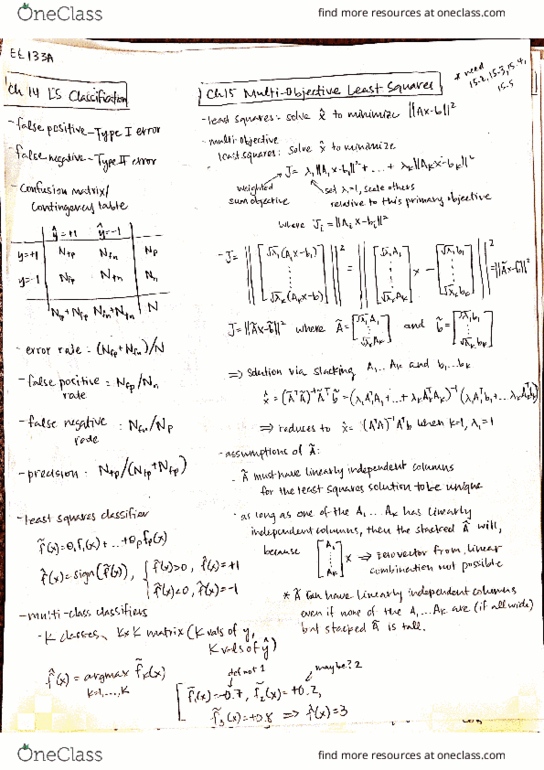 OneClass
find more resources at oneclass.com
EE 133A
Ch 14 LS Classification
- false positive - Type I error
- false negative - Type II error
- confusion matrix/
contingency table
ŷ=+1 ŷ=-1
y=+1 Ntp Nfn Np
y=-1 Nfp Ntn Nn
Ntp+Nfp Nfn+Ntn N
- error rate: (Nfp+Nfn)/N
- false positive : Nfp/Nn
rate
- false negative : Nfn/Np
rate
- precision: Ntp/(Ntp+Nfp)
- least squares classifier
f̃(x)=θ₁f₁(x)+...+θₚfₚ(x)
f̂(x)=sign(f̃(x)), { f̃(x)>0, f̂(x)=+1
f̃(x)<0, f̂(x)=-1
- multi-class classifiers
- K classes, K×K matrix (K vals of y,
K vals of ŷ)
f̂(x) = argmax f̃ₖ(x)
k=1,...,K
def not 1
maybe? 2
f̃₁(x)=-0.7, f̃₂(x)=+0.2,
f̃₃(x)=+0.8 ⇒ f̂(x)=3
Ch 15 Multi-Objective Least Squares
* need
15.2, 15.3, 15.4,
15.5
- least squares: solve x̂ to minimize ||Ax-b||²
- multi-objective
least squares: solve x̂ to minimize
J = λ₁||A₁x-b₁||² + ... + λₖ||Aₖx-bₖ||²
weighted
sum objective
set λ=1, scale others
relative to this primary objective
where Jᵢ = ||Aᵢx-bᵢ||²
- J = ||[√λ₁(A₁x-b₁) ⋮ √λₖ(Aₖx-b)]||² = ||[√λ₁A₁ ⋮ √λₖAₖ]x - [√λ₁b₁ ⋮ √λₖbₖ]||² = ||Ãx-b̃||²
J = ||Ãx-b̃||² where Ã = [√λ₁A₁ ⋮ √λₖAₖ] and b̃ = [√λ₁b₁ ⋮ √λₖbₖ]
⇒ solution via stacking A₁...Aₖ and b₁...bₖ
x̂ = (ÃᵀÃ)⁻¹Ãᵀb̃ = (λ₁A₁ᵀA₁+...+λₖAₖᵀAₖ)⁻¹(λ₁A₁ᵀb₁+...λₖAₖᵀbₖ)
⇒ reduces to x̂ = (AᵀA)⁻¹Aᵀb when k=1, λ₁=1
- assumptions of Ã:
- Ã must have linearly independent columns
for the least squares solution to be unique
- as long as one of the A₁...Aₖ has linearly
independent columns, then the stacked Ã will,
because [A₁ ⋮ Aₖ] x ⇒ zero vector from linear
combination not possible
* Ã can have linearly independent columns
even if none of the A₁...Aₖ are (if all wide)
but stacked Ã is tall.
OneClass
find more resources at oneclass.com